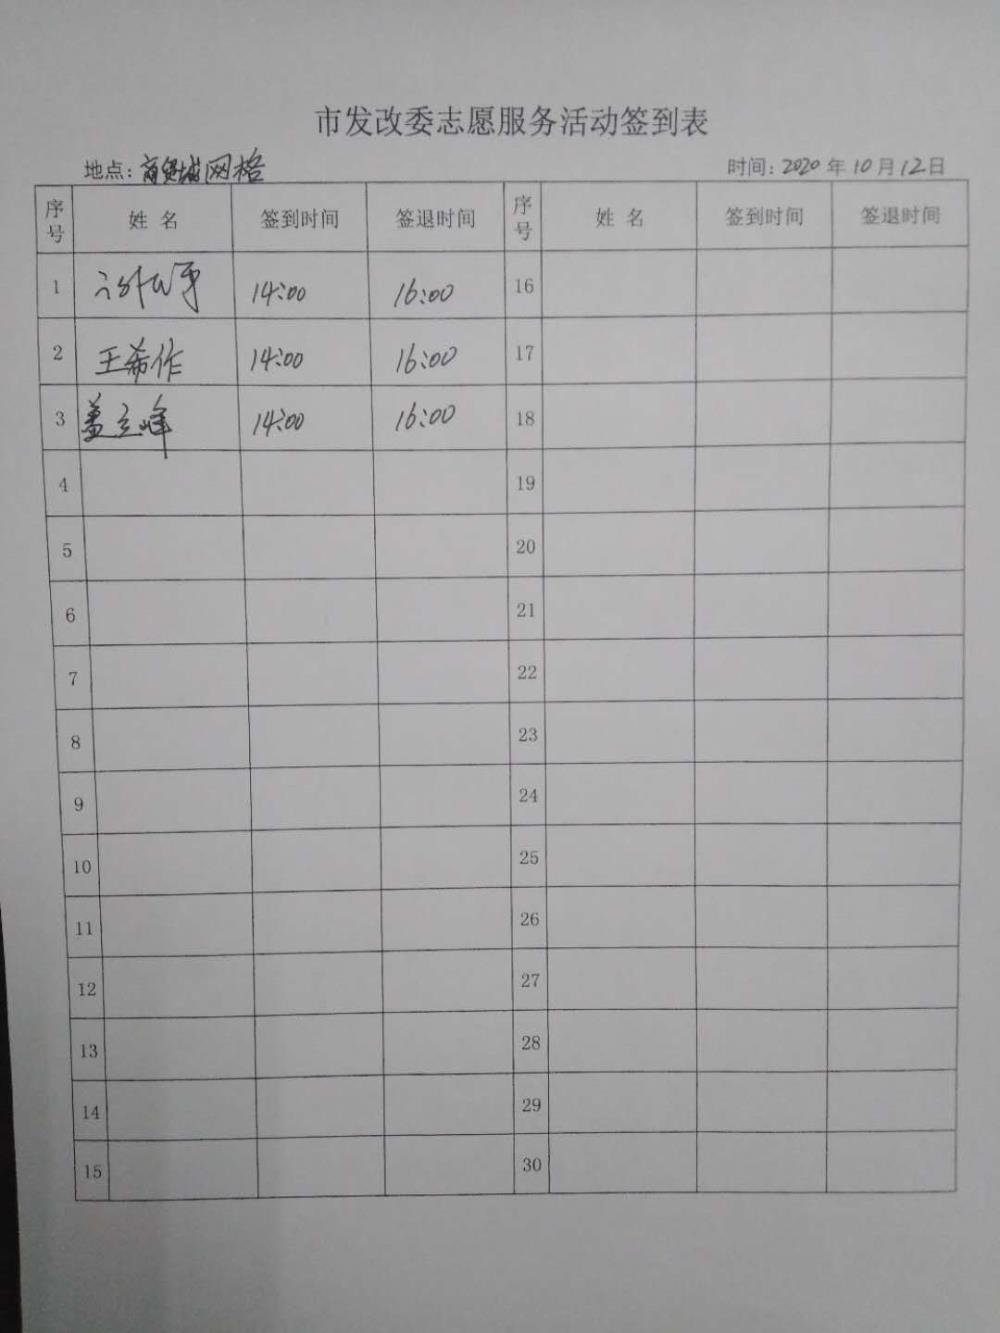 市发改委志愿服务活动签到表
地点: 商贸城网格 时间: 2020 年 10 月 12 日
序号 姓 名 签到时间 签退时间 序号 姓 名 签到时间 签退时间
1 14:00 16:00 16
2 王希作 14:00 16:00 17
3 盖立峰 14:00 16:00 18
4 19
5 20
6 21
7 22
8 23
9 24
10 25
11 26
12 27
13 28
14 29
15 30